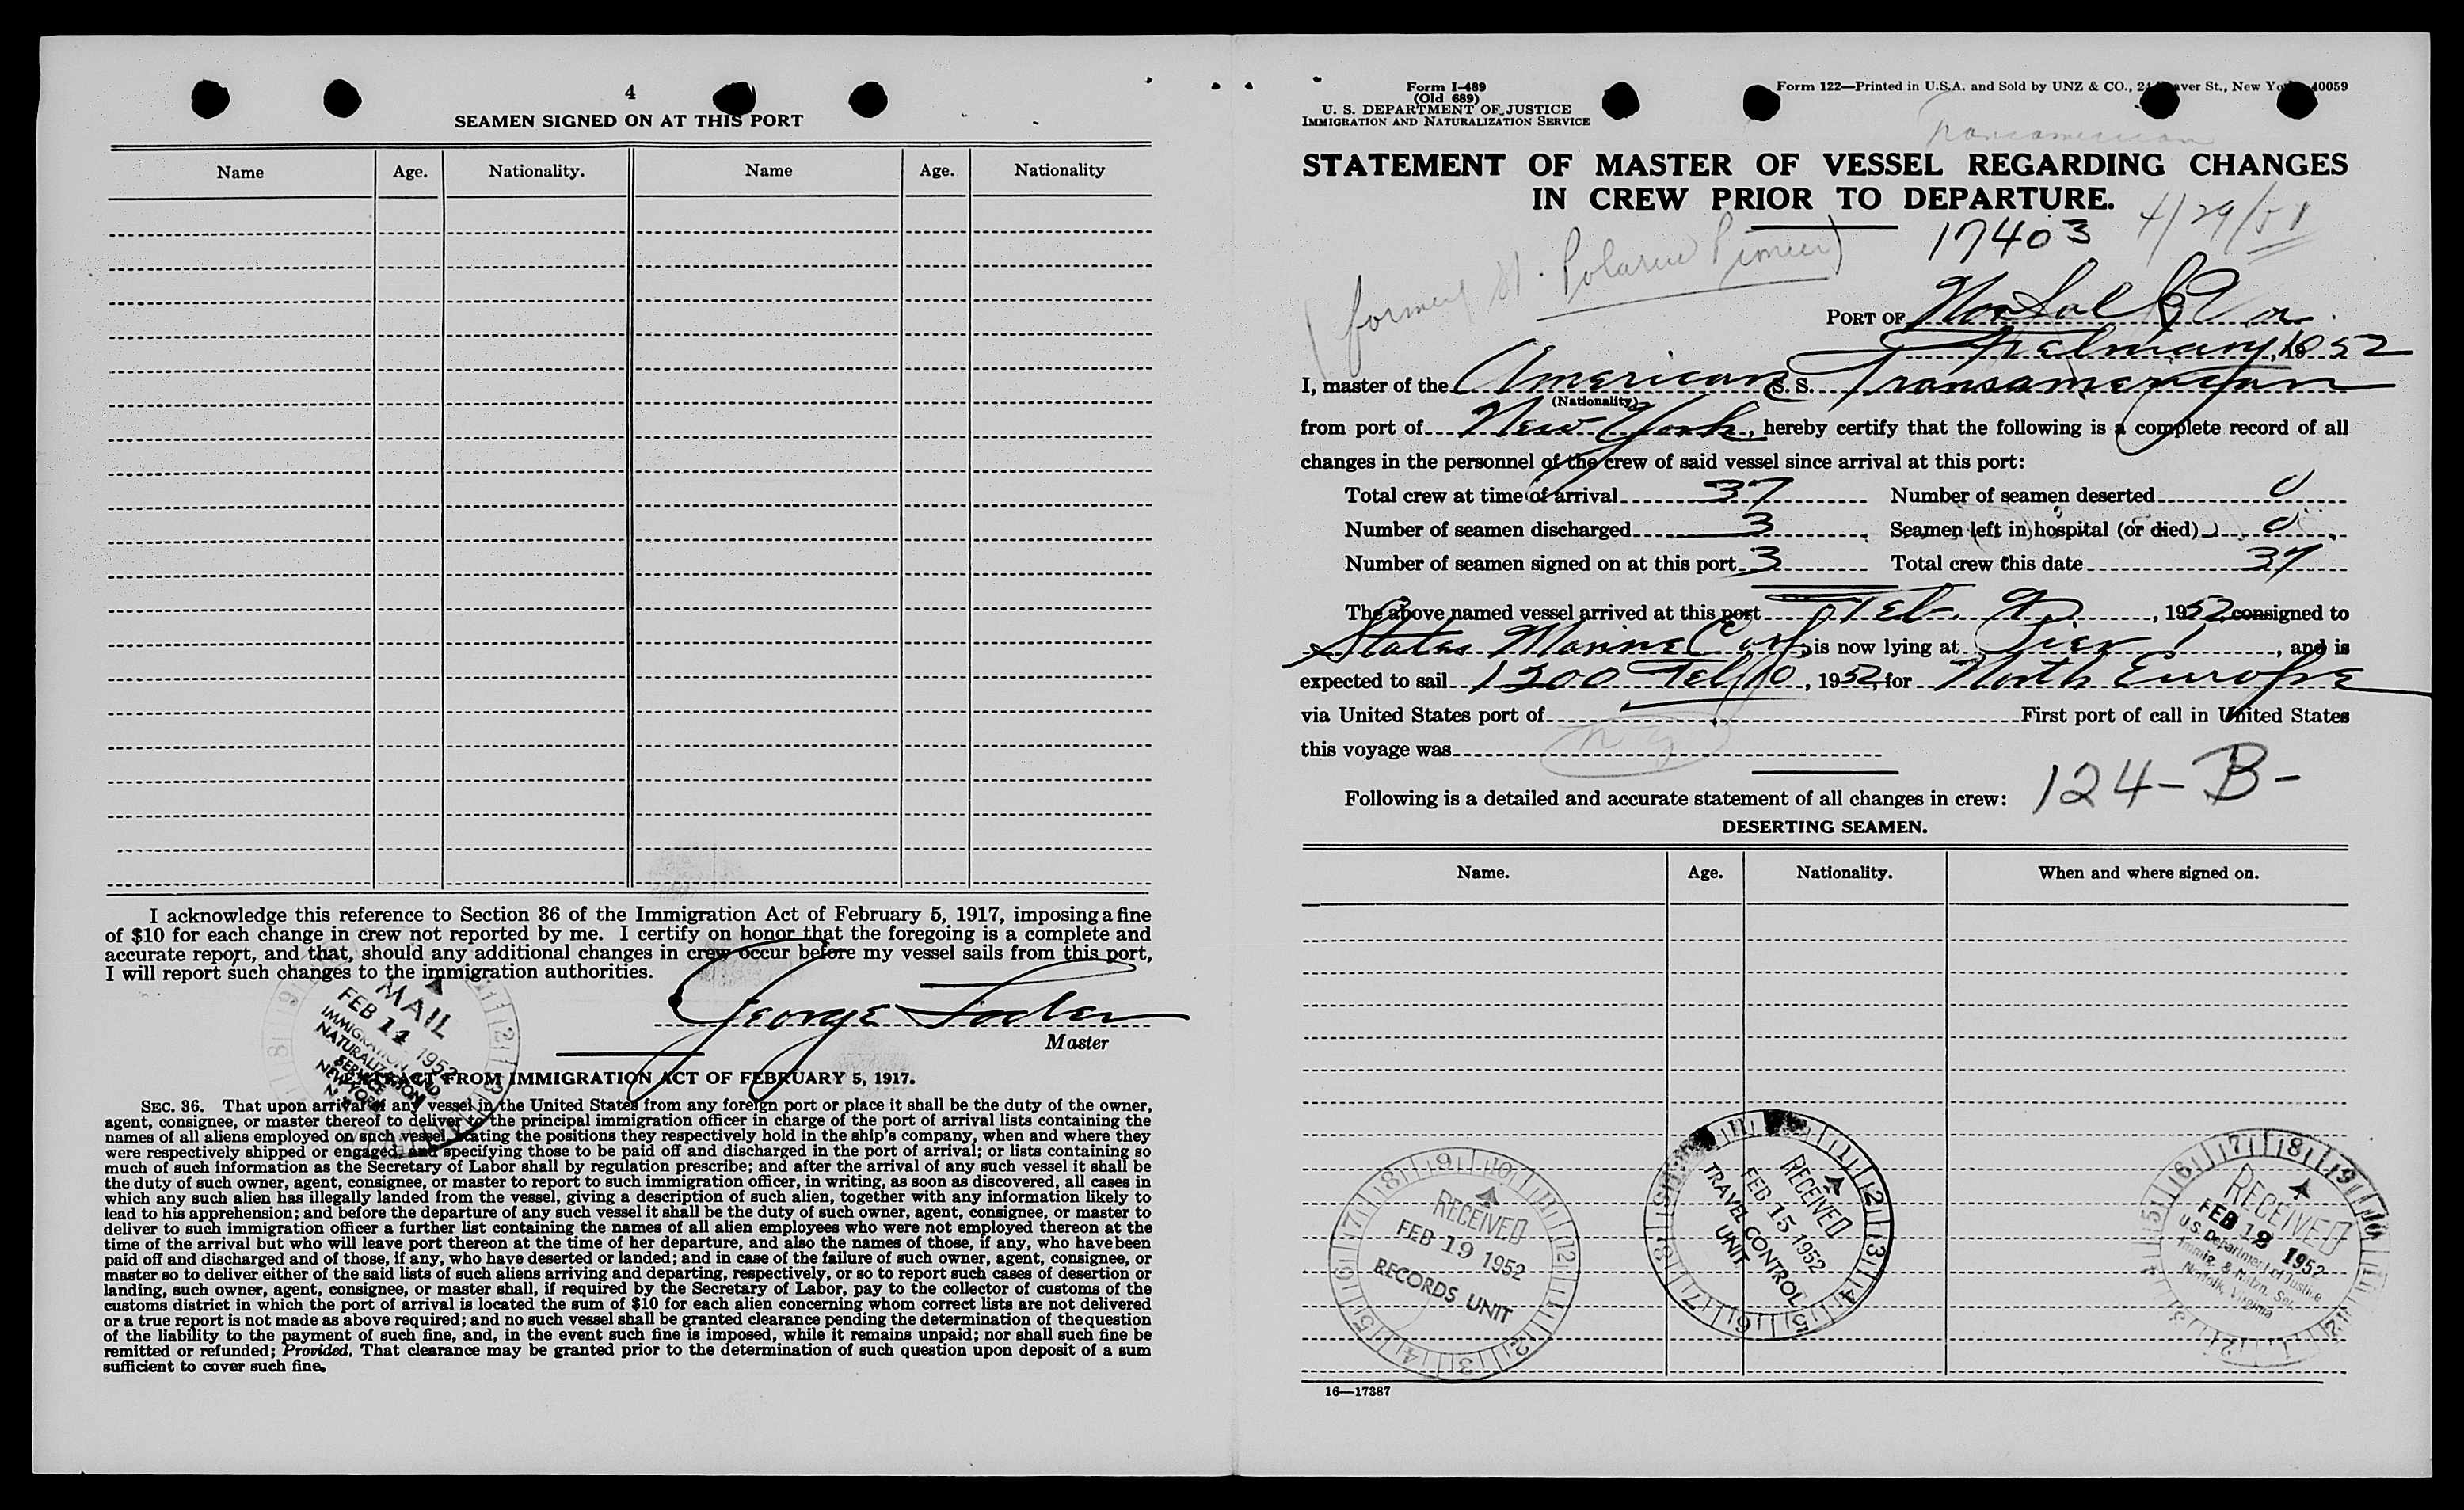 4
SEAMEN SIGNED ON AT THIS PORT
Name Age. Nationality. Name Age. Nationality
I acknowledge this reference to Section 36 of the Immigration Act of February 5, 1917, imposing a fine
of $10 for each change in crew not reported by me. I certify on honor that the foregoing is a complete and
accurate report, and that, should any additional changes in crew occur before my vessel sails from this port,
I will report such changes to the immigration authorities.
George
Master
MAIL
FEB 14 1952
IMMIGRATION AND
NATURALIZATION
SERVICE
NEW YORK
N. Y.
EXTRACT FROM IMMIGRATION ACT OF FEBRUARY 5, 1917.
SEC. 36. That upon arrival of any vessel in the United States from any foreign port or place it shall be the duty of the owner,
agent, consignee, or master thereof to deliver to the principal immigration officer in charge of the port of arrival lists containing the
names of all aliens employed on such vessel, stating the positions they respectively hold in the ship's company, when and where they
were respectively shipped or engaged, and specifying those to be paid off and discharged in the port of arrival; or lists containing so
much of such information as the Secretary of Labor shall by regulation prescribe; and after the arrival of any such vessel it shall be
the duty of such owner, agent, consignee, or master to report to such immigration officer, in writing, as soon as discovered, all cases in
which any such alien has illegally landed from the vessel, giving a description of such alien, together with any information likely to
lead to his apprehension; and before the departure of any such vessel it shall be the duty of such owner, agent, consignee, or master to
deliver to such immigration officer a further list containing the names of all alien employees who were not employed thereon at the
time of the arrival but who will leave port thereon at the time of her departure, and also the names of those, if any, who have been
paid off and discharged and of those, if any, who have deserted or landed; and in case of the failure of such owner, agent, consignee, or
master so to deliver either of the said lists of such aliens arriving and departing, respectively, or so to report such cases of desertion or
landing, such owner, agent, consignee, or master shall, if required by the Secretary of Labor, pay to the collector of customs of the
customs district in which the port of arrival is located the sum of $10 for each alien concerning whom correct lists are not delivered
or a true report is not made as above required; and no such vessel shall be granted clearance pending the determination of the question
of the liability to the payment of such fine, and, in the event such fine is imposed, while it remains unpaid; nor shall such fine be
remitted or refunded; Provided, That clearance may be granted prior to the determination of such question upon deposit of a sum
sufficient to cover such fine.
Form I-489
(Old 689)
U. S. DEPARTMENT OF JUSTICE
IMMIGRATION AND NATURALIZATION SERVICE
Form 122—Printed in U.S.A. and Sold by UNZ & CO., St., New 40059
Transamerican
STATEMENT OF MASTER OF VESSEL REGARDING CHANGES
IN CREW PRIOR TO DEPARTURE.
17403 4/29/51
(formerly Polarus Pioneer)
PORT OF Norfolk Va
February, 1952
I, master of the American S. S. Transamerican
(Nationality)
from port of New York, hereby certify that the following is a complete record of all
changes in the personnel of the crew of said vessel since arrival at this port:
Total crew at time of arrival 37 Number of seamen deserted 0
Number of seamen discharged 3 Seamen left in hospital (or died) 0
Number of seamen signed on at this port 3 Total crew this date 37
The above named vessel arrived at this port Feb. , 1952 consigned to
States Marine Corp, is now lying at Pier 1, and is
expected to sail 1300 Feb 10, 1952, for North Europe
via United States port of First port of call in United States
this voyage was N.Y.
Following is a detailed and accurate statement of all changes in crew: 124-B-
DESERTING SEAMEN.
Name. Age. Nationality. When and where signed on.
RECEIVED
FEB 19 1952
RECORDS UNIT
RECEIVED
FEB 15 1952
TRAVEL CONTROL
UNIT
RECEIVED
FEB 1952
U.S. Department of Justice
Immig. & Natzn. Ser.
Norfolk, Virginia
16—17387